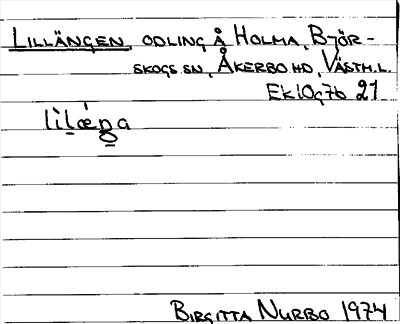 LILLÄNGEN, ODLING Å HOLMA, BJÖR-
SKOGS SN, ÅKERBO HD, VÄSTM.L.
Ek 10g7b 21
BIRGITTA NURBO 1974